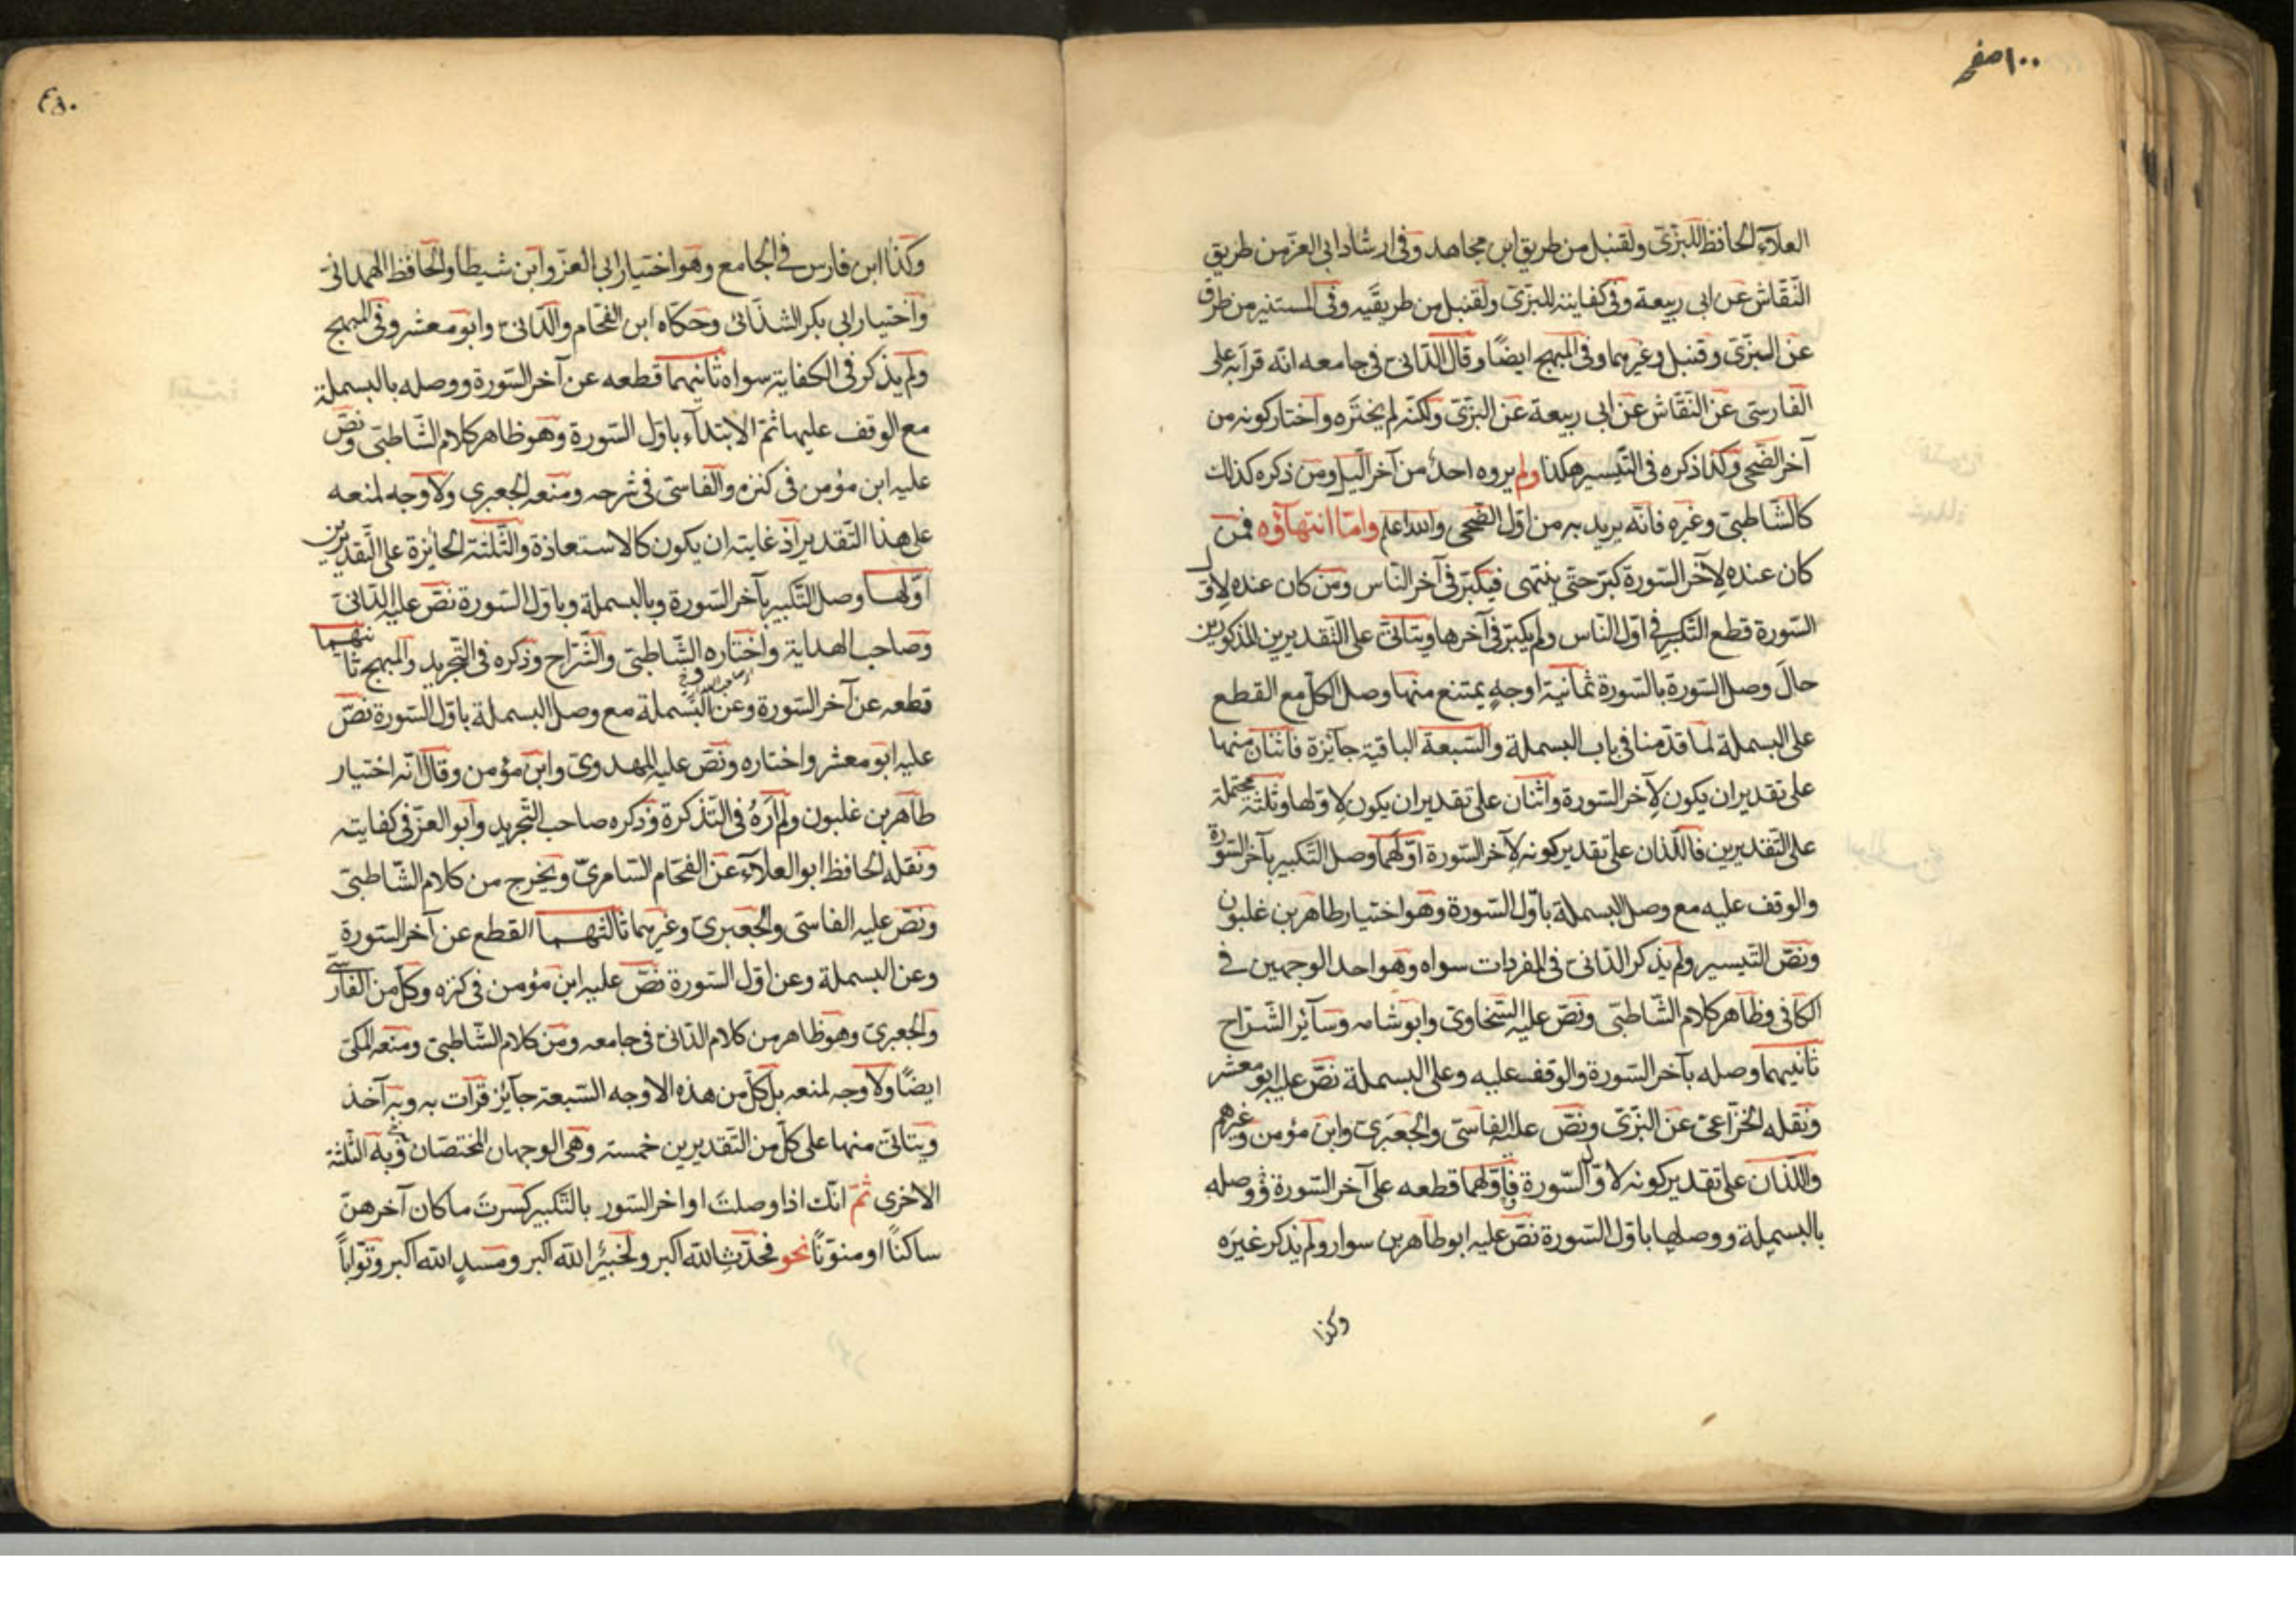 ١٠٠ صفر
العلآء الحافظ للبزّى ولقنبل من طريق ابن مجاهد وفى ارشاد ابى العزّ من طريق
النّقّاش عن ابى ربيعة وفى كفايته للبزّى ولقنبل من طريقيه وفى المستنير من طرق
عن البزّى وقنبل وغيرهما وفى المبهج ايضًا وقال الدّانىّ فى جامعه انّه قرأ به على
الفارسىّ عن النّقّاش عن ابى ربيعة عن البزّى ولكنّه لم يختره واختار كونه من
آخر الضّحى وكذا ذكره فى التّيسير هكذا ولم يروه احدٌ من آخر اللّيل ومن ذكره كذلك
كالشّاطبىّ وغيره فانّه يريد به من اوّل الضّحى والله اعلم وامّا انتهآؤه فمن
كان عنده لآخر السّورة كبّر حتّى ينتهى فيكبّر فى آخر النّاس ومن كان عنده لاوّل
السّورة قطع التّكبير فى اوّل النّاس ولم يكبّر فى آخرها ويتأتّى على التّقديرين المذكورين
حالَ وصل السّورة بالسّورة ثمانية اوجهٍ يمتنع منها وصل الكلّ مع القطع
على البسملة لما قدّمنا فى باب البسملة والسّبعة الباقية جآئزة فاثنان منها
على تقدير ان يكون لآخر السّورة واثنان على تقدير ان يكون لاوّلها وثلثة محتملة
على التّقديرين فاللّذان على تقدير كونه لآخر السّورة اوّلهما وصل التّكبير بآخر السّورة
والوقف عليه مع وصل البسملة باوّل السّورة وهو اختيار طاهر بن غلبون
ونصّ التّيسير ولم يذكر الدّانىّ فى المفردات سواه وهو احد الوجهين فى
الكافى وظاهر كلام الشّاطبىّ ونصّ عليه السّخاوىّ وابو شامه وسآئر الشّرّاح
ثانيهما وصله بآخر السّورة والوقف عليه وعلى البسملة نصّ عليه ابو معشر
ونقله الخزّاعىّ عن البزّى ونصّ عليه الفاسىّ والجعبرىّ وابن مؤمن وغيرهم
واللّذان على تقدير كونه لاوّل السّورة فاوّلهما قطعه على آخر السّورة ووصله
بالبسملة ووصلها باوّل السّورة نصّ عليه ابو طاهر بن سوار ولم يذكر غيرَه
وكذا
وكذا ابن فارس فى الجامع وهو اختيار ابى العزّ وابن شيطا والحافظ الهمدانى
واختيار ابى بكر الشذائى وحكاه ابن الفحّام والدّانىّ وابو معشر وفى المبهج
ولم يذكر فى الكفاية سواه ثانيهما قطعه عن آخر السّورة ووصله بالبسملة
مع الوقف عليها ثمّ الابتدآء باوّل السّورة وهو ظاهر كلام الشّاطبىّ ونصّ
عليه ابن مؤمن فى كنزه والفاسىّ فى شرحه ومنعه الجعبرى ولا وجه لمنعه
على هذا التّقدير اذ غايته ان يكون كالاستعاذة والثّلثة الجائزة على التّقديرين
اوّلها وصل التّكبير بآخر السّورة وبالبسملة وباوّل السّورة نصّ عليه الدّانىّ
وصاحب الهداية واختاره الشّاطبىّ والشّرّاح وذكره فى التّجريد والمبهج ثانيهما
قطعه عن آخر السّورة وعن البسملة مع وصل البسملة باوّل السّورة نصّ
عليه ابو معشر واختاره ونصّ عليه المهدوىّ وابن مؤمن وقال انّه اختيار
طاهر بن غلبون ولم ارَهُ فى التّذكرة وذكره صاحب التّجريد وابو العزّ فى كفايته
ونقله الحافظ ابو العلآء عن الفحّام السّامرىّ ويخرج من كلام الشّاطبىّ
ونصّ عليه الفاسىّ والجعبرىّ وغيرهما ثالثهما القطع عن آخر السّورة
وعن البسملة وعن اوّل السّورة نصّ عليه ابن مؤمن فى كنزه وكلّ من الفارسىّ
والجعبرىّ وهو ظاهر من كلام الدّانىّ فى جامعه ومن كلام الشّاطبىّ ومنعه المكىّ
ايضًا ولا وجه لمنعه بل كلّ من هذه الاوجه السّبعة جآئز قرأت به وبه آخذ
ويتأتّى منها على كلّ من التّقديرين خمسة وهى الوجهان المختصّان به والثّلثة
الاخرى ثمّ انّك اذا وصلتَ اواخر السّور بالتّكبير كسرتَ ما كان آخرهنّ
ساكنًا او منوّنًا نحو فحدّثِ الله اكبر ولخبيرٌ الله اكبر ومسدٍ الله اكبر وتوّابًا